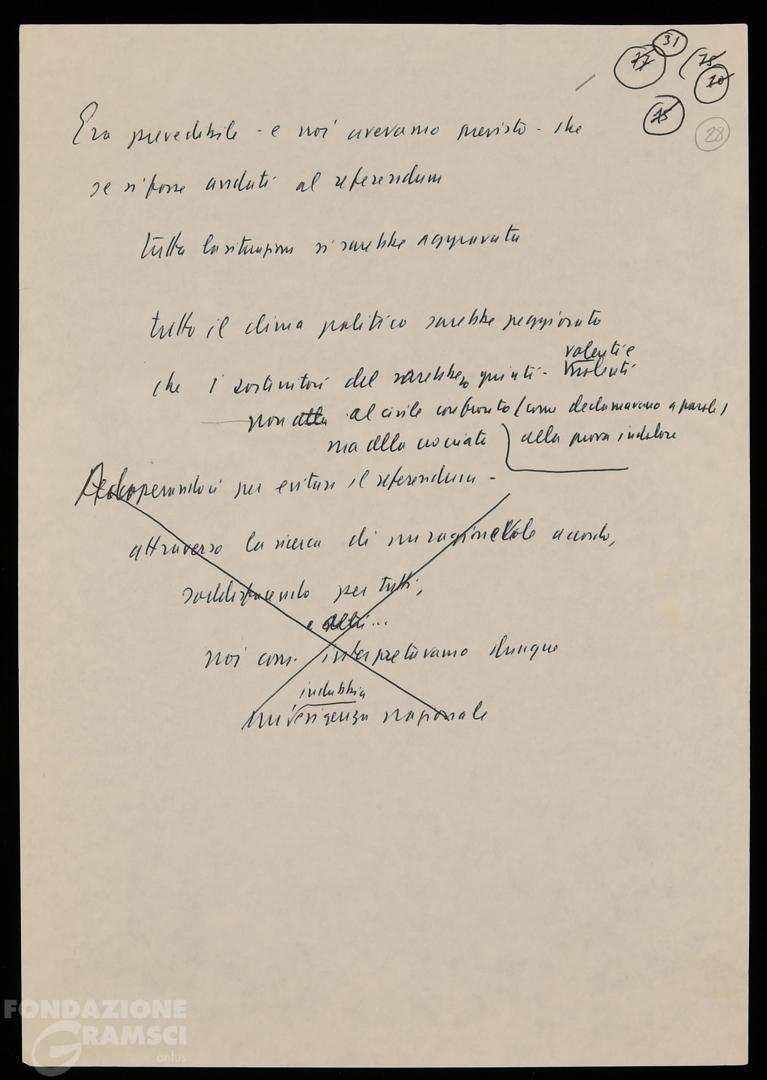 31
77 78
20
75 28
Era prevedibile - e noi avevamo previsto - che
se si fosse andati al referendum
tutta la situazione si sarebbe aggravata
tutto il clima politico sarebbe peggiorato
che i sostenitori del sarebbero giunti -
volenti e
nolenti
non alla al civile confronto (come declamavano a parole)
ma alla crociata alla prova
Adoperandoci per evitare il referendum -
attraverso la ricerca di un ragionevole accordo,
soddisfacendo per tutti,
e altri...
noi com. interpretavamo dunque
indubbia
un'esigenza nazionale
FONDAZIONE
GRAMSCI
onlus